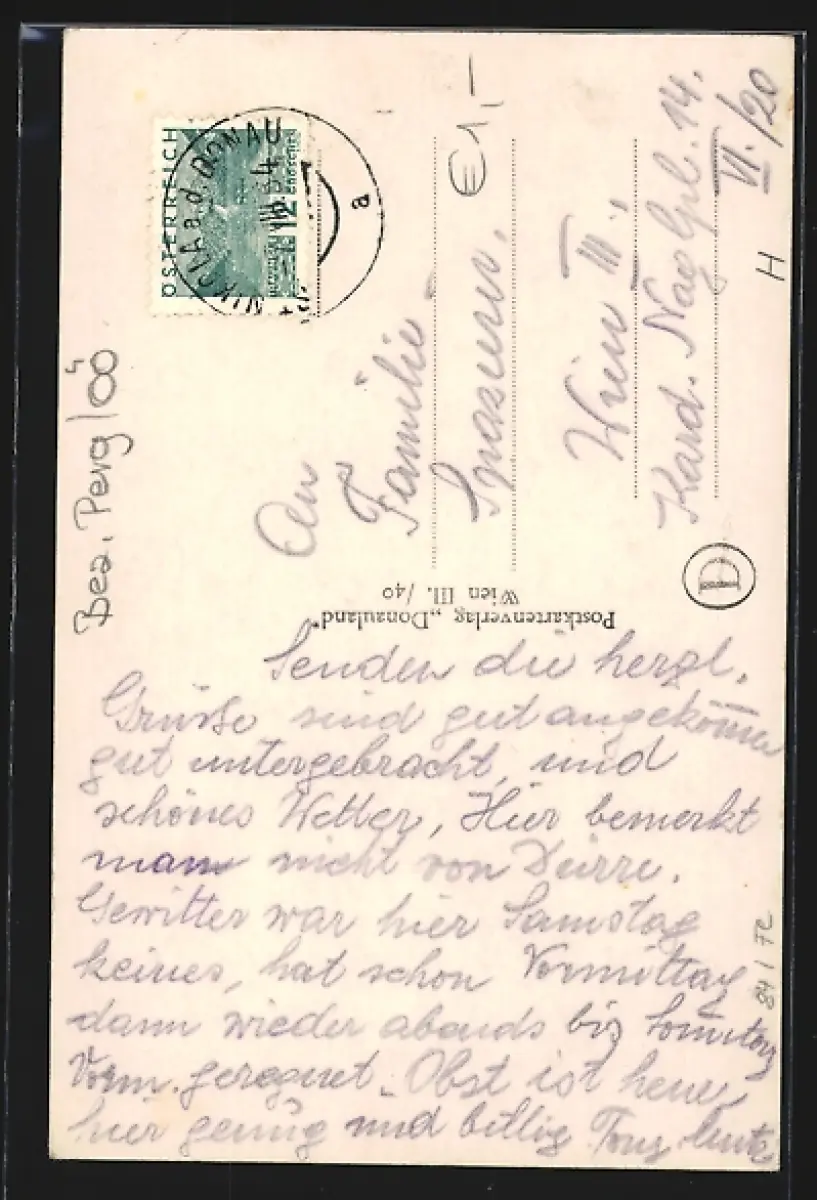 ÖSTERREICH
12
GROSCHEN
NIKOLA a. d. DONAU
a
Bez. Perg / OÖ
€1,-
An
Familie
Wien III.,
Kard. Nagl Pl. 14.
VI./20
H
D
Postkartenverlag „Donauland"
Wien III. /40
Senden die herzl.
Grüsse sind gut angekommen
gut untergebracht, und
schönes Wetter, Hier bemerkt
man nicht von Dürre.
Gewitter war hier Samstag
keines, hat schon Vormittag
dann wieder abends bis Sonntag
Vorm. geregnet. Obst ist heuer
hier genug und billig